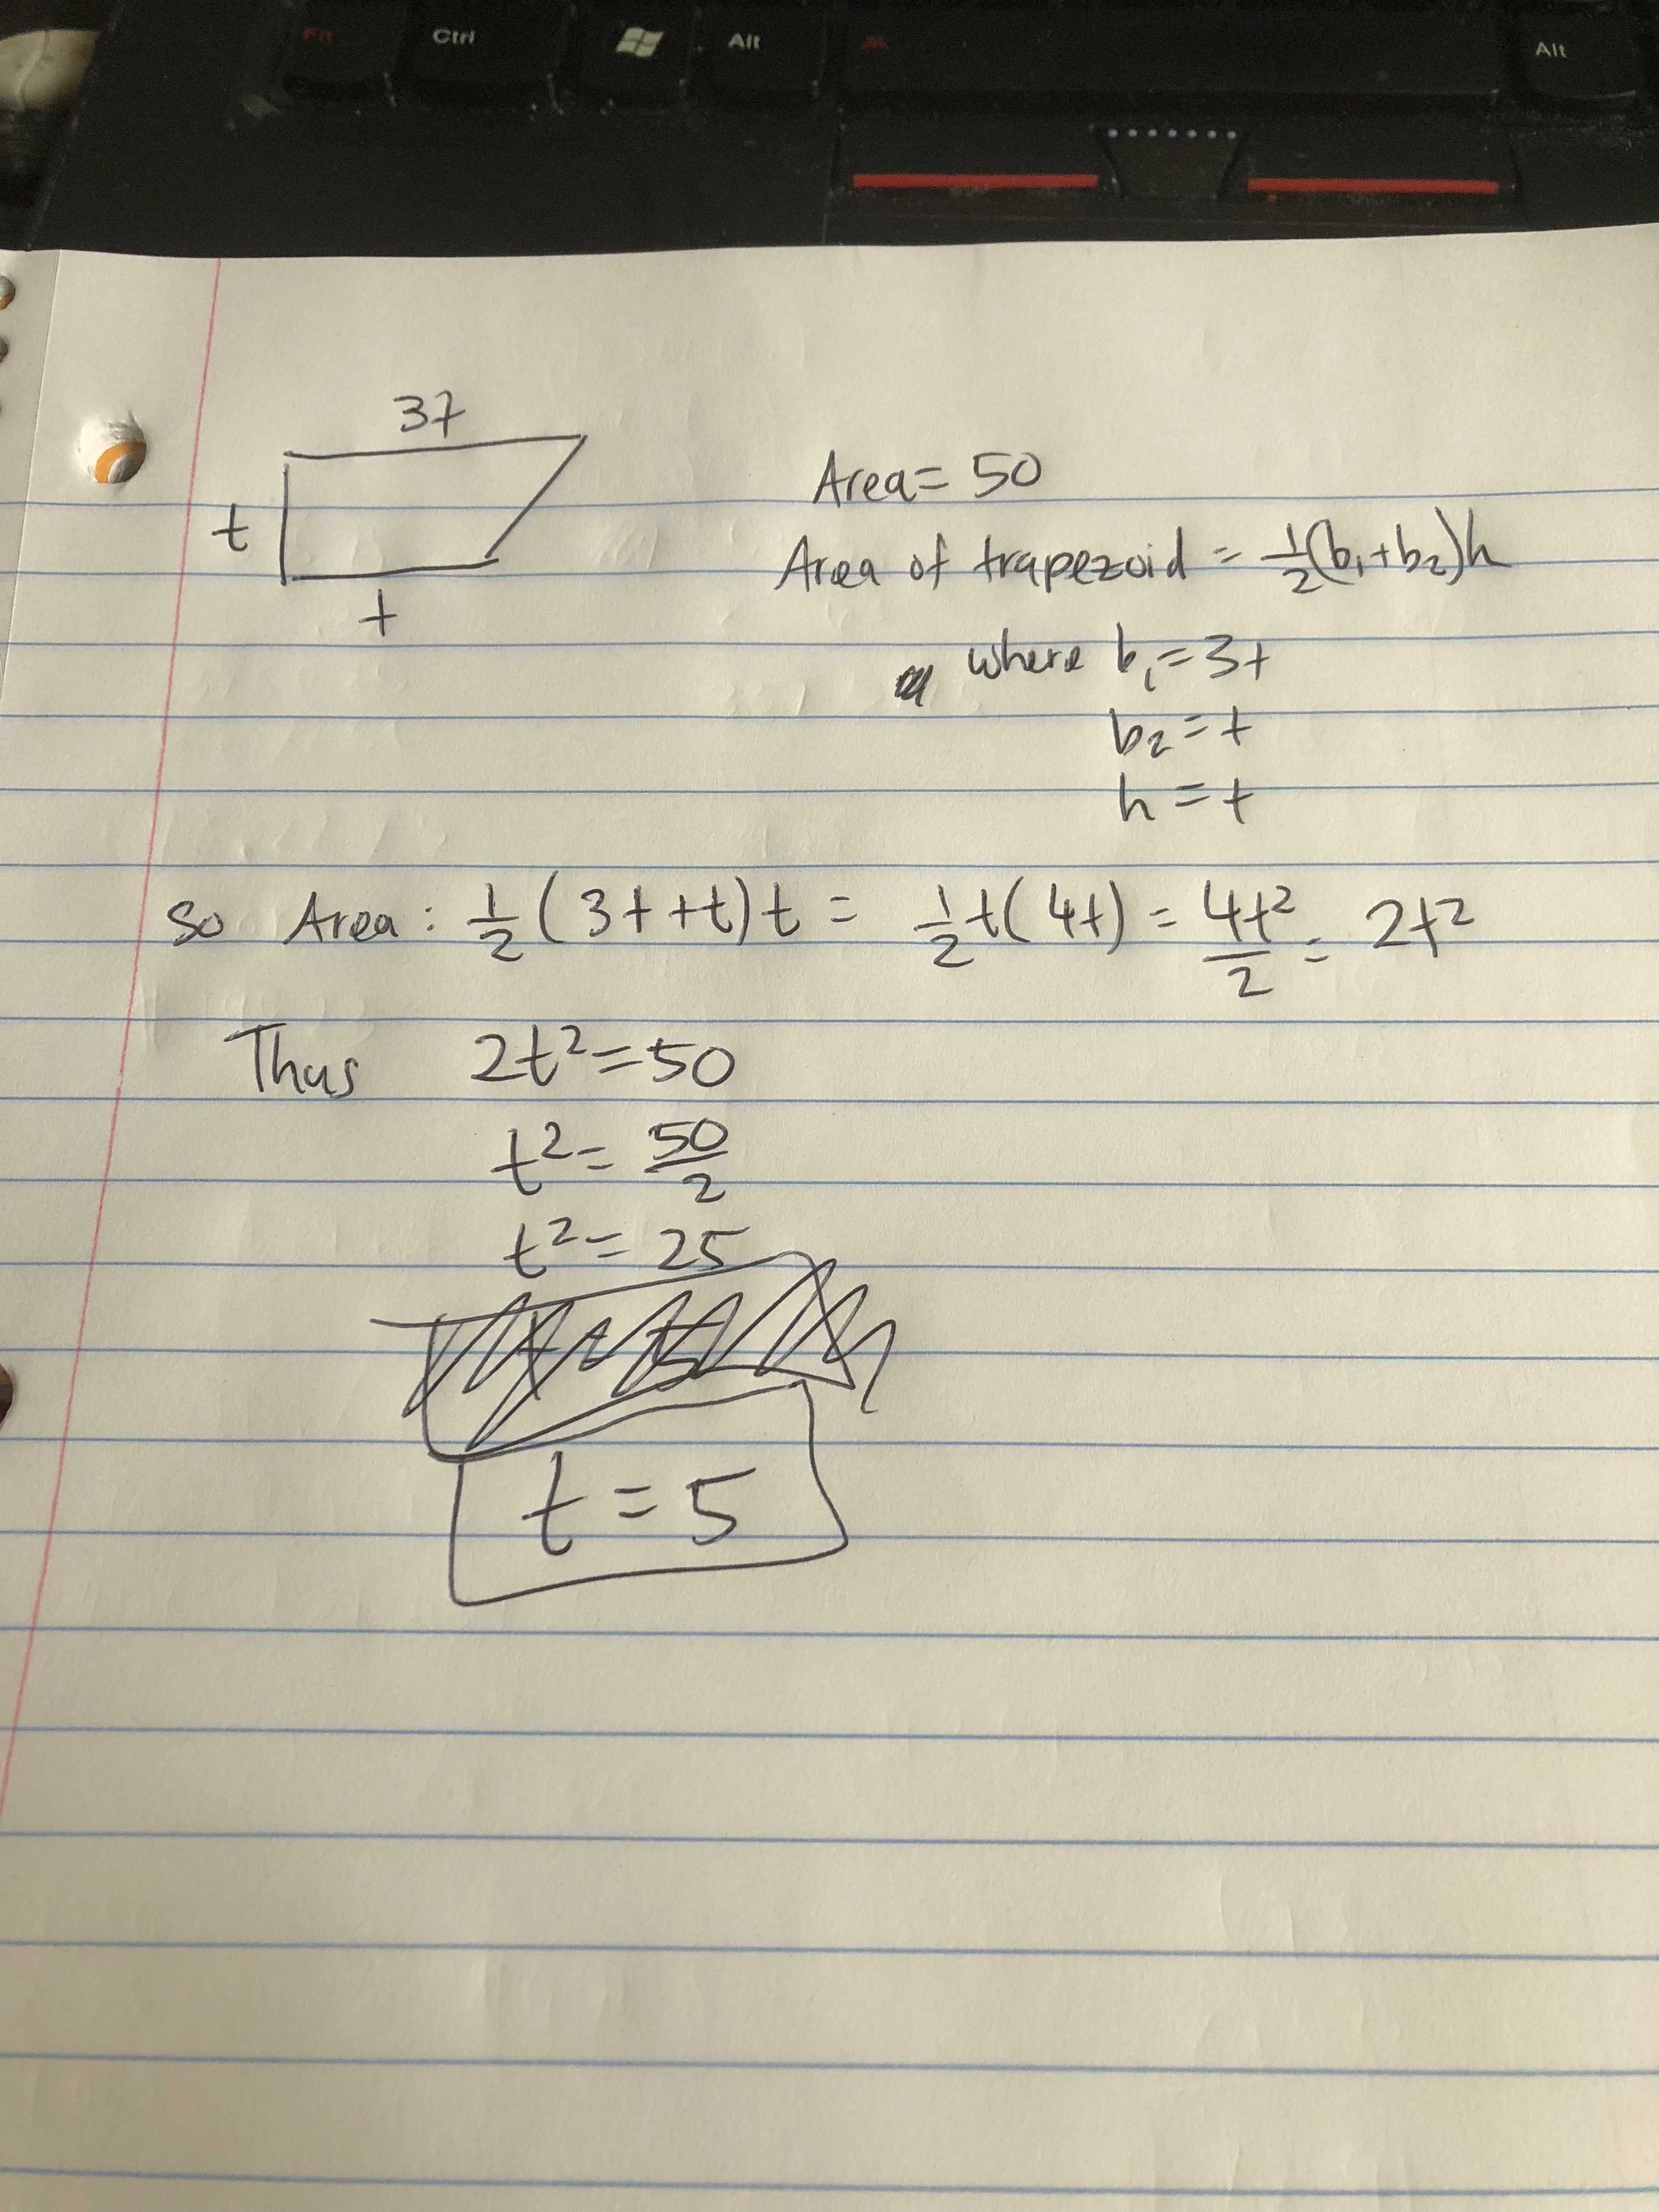 Fn Ctrl Alt Alt
3t
t
t
Area = 50
Area of trapezoid = 1/2(b₁+b₂)h
where b₁=3t
b₂=t
h=t
So Area: 1/2(3t+t)t = 1/2t(4t) = 4t²/2 = 2t²
Thus 2t²=50
t²=50/2
t²=25
t=5